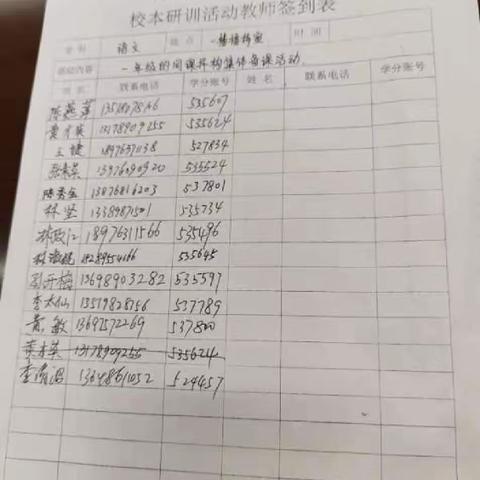 校本研训活动教师签到表
学科 语文 地点 时间
活动内容 一年级的同课异构集体备课活动
姓名 联系电话 学分账号 姓名 联系电话 学分账号
535607
黄才英 13178909255 535624
王婕 18976371038 527834
13976090920 535524
陈秀金 13876816203 537801
林坚 13389871501 535734
18976311566 535496
535645
刘开梅 13698903282 535597
李大仙 13519828156 537789
黄敏 13697572269 537800
黄才英 13178909255 535624
李清 13648861052 524457